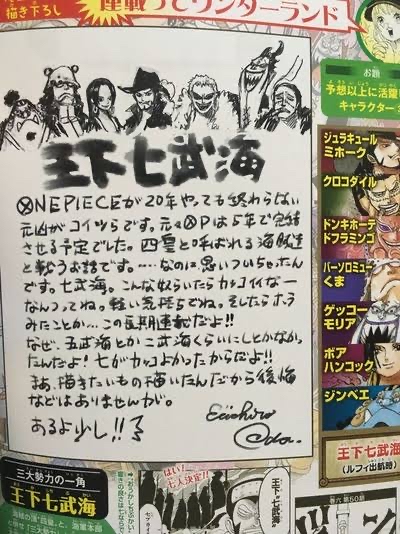 描き下ろし
連載ってワンダーランド
お題
予想以上に活躍
キャラクター
王下七武海
ⓍNEPIECEが20年やっても終わらない
元凶がコイツらです。元々ⓍPは5年で完結
させる予定でした。四皇と呼ばれる海賊達
と戦うお話です。……なのに思いついちゃったん
です。七武海。こんな奴らいたらカッコイイなー
なんつってね。軽い気持ちでね。そしたらホラ
みたことか…この長期連載だよ!!
なぜ、五武海とか二武海くらいにしとかなかっ
たんだよ!七がカッコよかったからだよ!!
まあ、描きたいもの描いたんだから後悔
などはありませんが。
あるよ少し!!
Eiichiro
Oda.
ジュラキュール
ミホーク
クロコダイル
ドンキホーテ
ドフラミンゴ
バーソロミュー
くま
ゲッコー
モリア
ボア
ハンコック
ジンベエ
王下七武海
(ルフィ出航時)
三大勢力の一角
王下七武海
はい!
七人決定!!
王下七武海
巻六 第50話